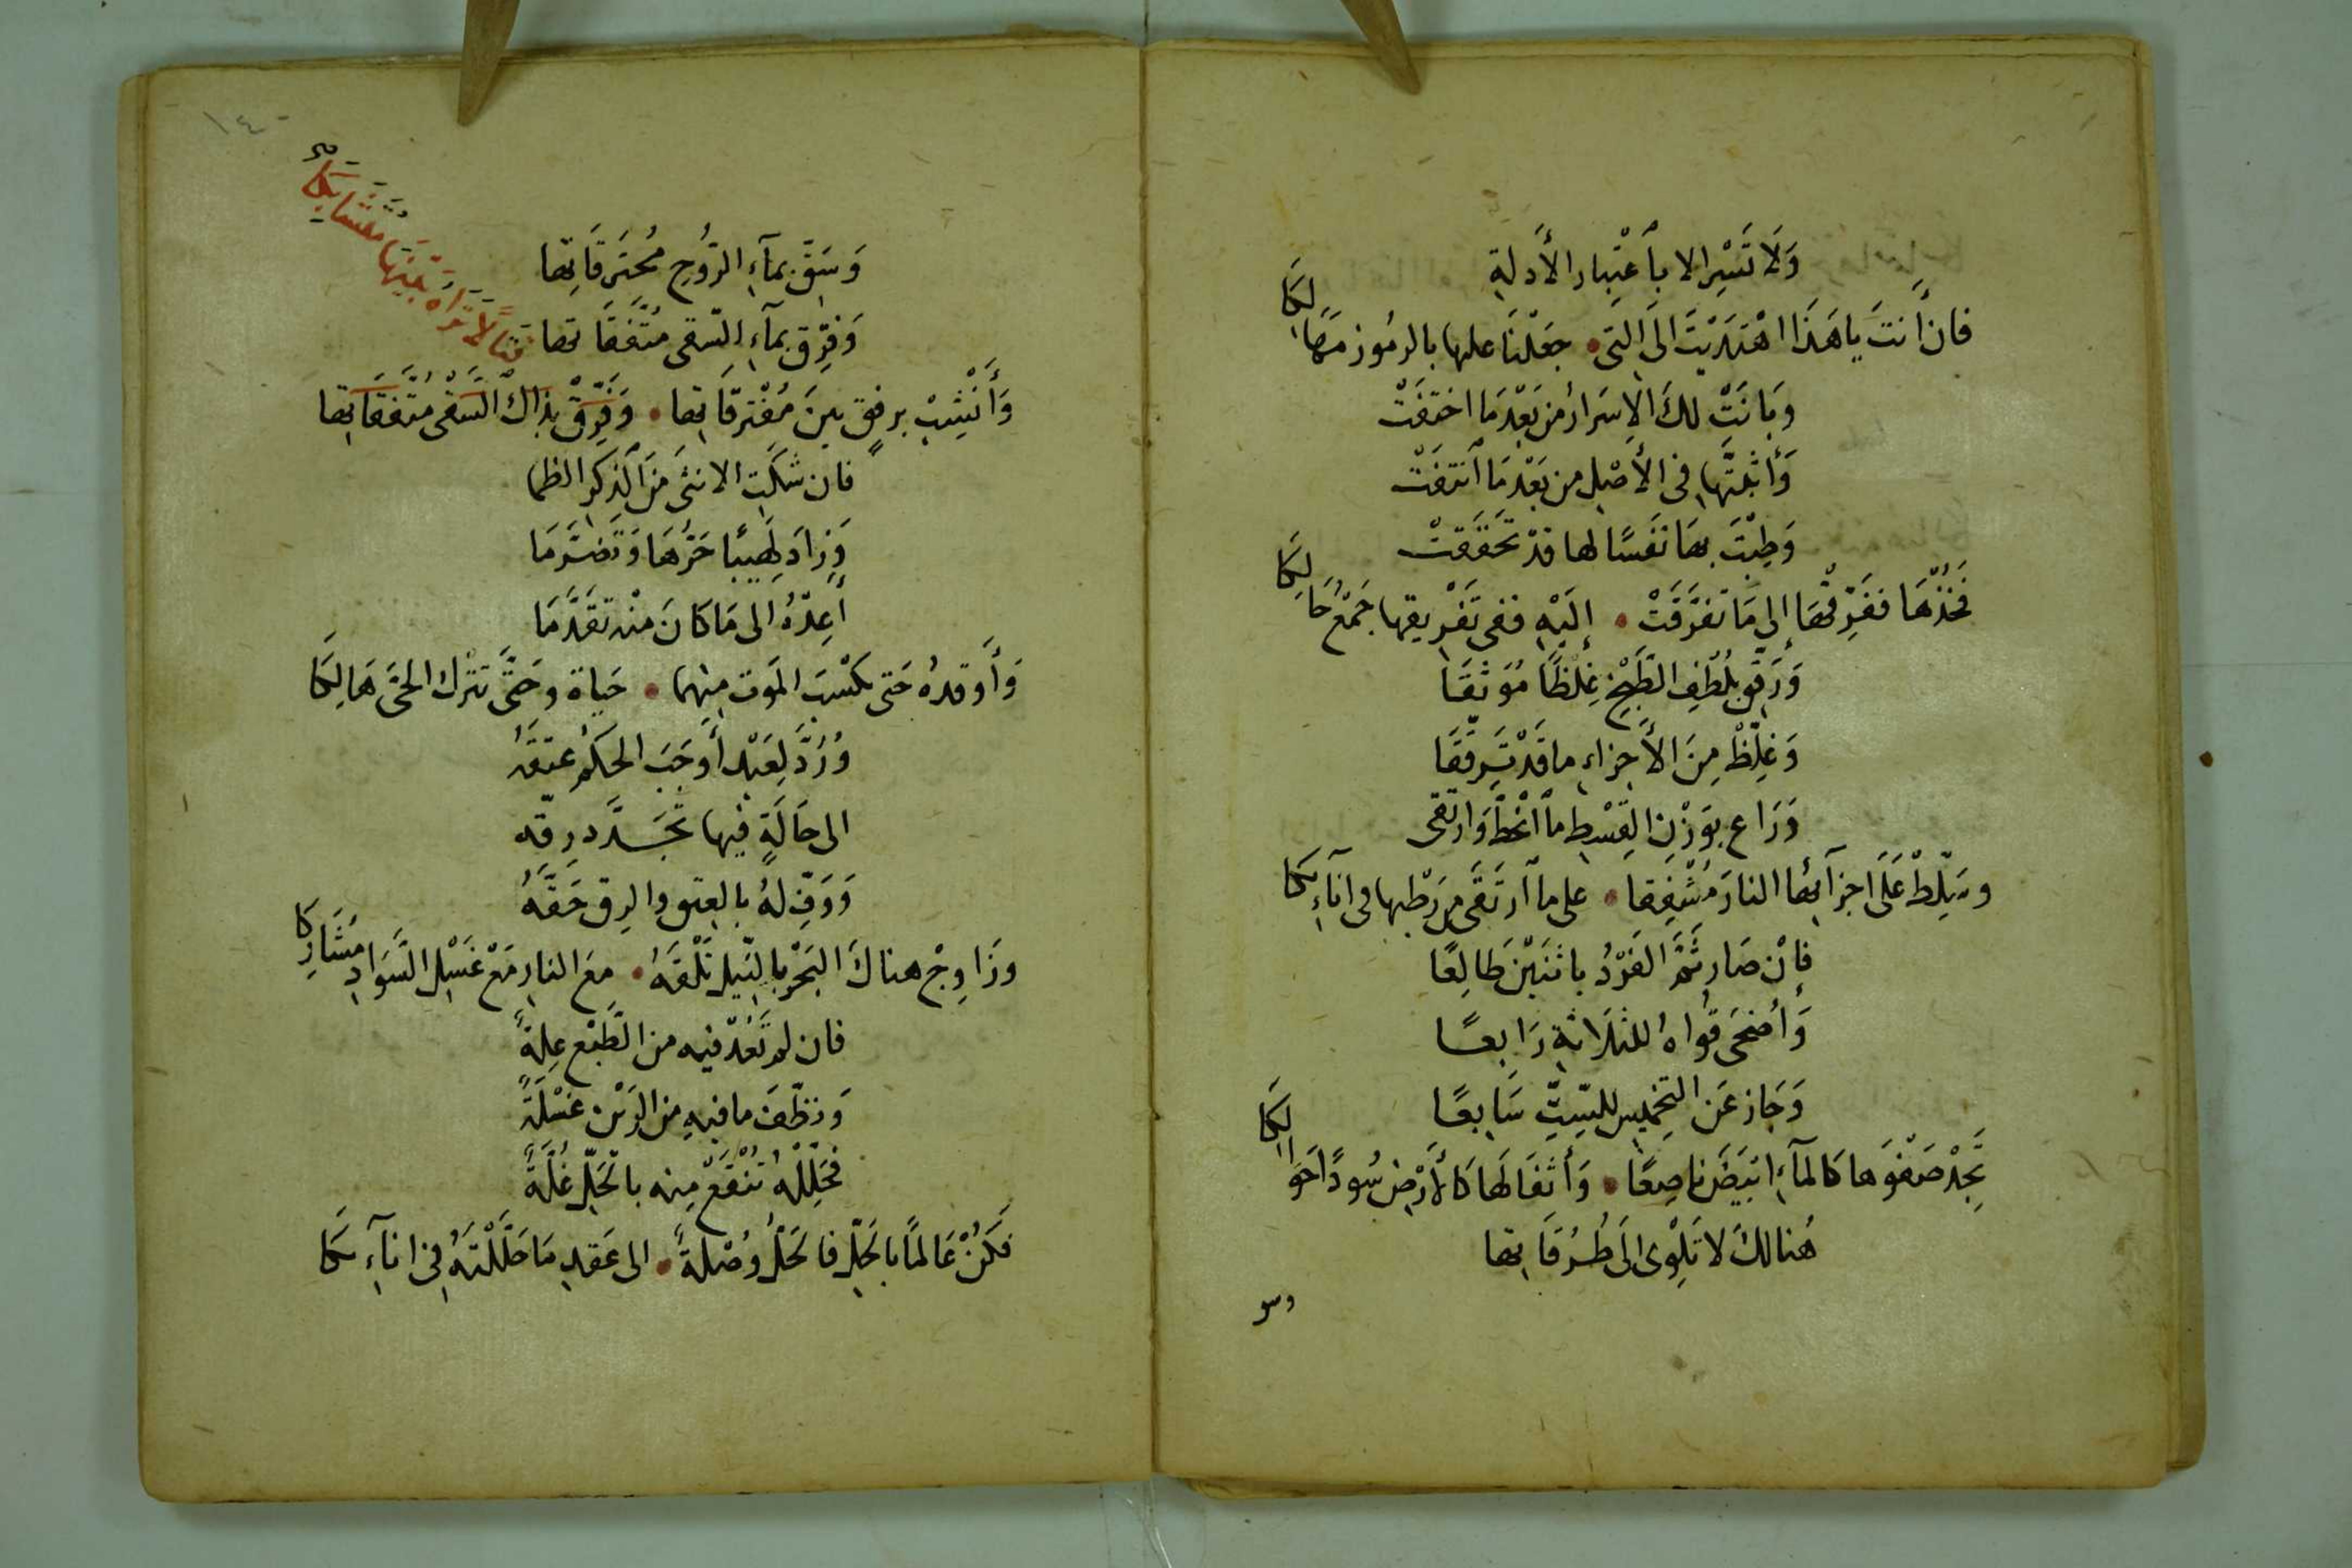 وَلَا تَسْرِ الا بِاعْتِبار الأَدلةِ
فان أنتَ ياهَذَا اهْتَدَيْتَ الَى التى • جعَلْنَا عليها بالرمُوز مَهَالِكَا
وَبَانَتْ لكَ الاسرارُ من بَعْدِ مَا اختفَتْ
وَأثبتَّها فى الأصْلِ من بَعْدِ مَا انتفَتْ
وَطِبْتَ بهَا نَفسًا لها قد تحَقّقَتْ
فَخُذْهَا ففَرِّقْهَا إِلى مَا تفَرَّقَتْ • إِلَيْهِ ففى تَفْرِيقِها جَمْعُ حَالِكَا
وَرَقِّقْ بلُطْفِ الطَّبْخِ غِلْظًا مُوَثقَا
وَغلِّظْ مِنَ الأَجزاءِ ما قَدْ تَرقَّقَا
وَرَاعِ بوَزْنِ القِسْطِ ما انْحَطَّ وَارتقى
وسَلِّطْ عَلَى اجزآئها النارَ مُشْفِقا • على ما ارتَقَى مِن رَطْبها فى انآءِكَا
فإنْ صَار ثَمَّ الفَرْدُ باثنَيْن طَالِعًا
وَأضحَى قُواهُ للثلَاثةِ رَابعًا
وَجَاز عَن التخميسِ للسِّتِّ سَابعًا
تَجِدْ صَفْوَها كالمآءِ ابيَضَ ناصِعًا • وَأثفَالَهَا كالأرْضِ سُودًا حَوَالِكَا
هُنالكَ لا تَلْوِى الَى طُرُقَاتها
وسو
١٤
وَسَقِّ بمآءِ الرّوُحِ مُحتَرقَاتِها
وَفرِّق بمآءِ السّقى مُتَّفقَاتها
قتالًا تراه بَينَها مُتَشَابِكَا
وَأَنْشِبْ برفقٍ بينَ مُفْترقاتِها • وَفَرِّقْ بذاكَ السَّقْى متَّفقَاتِها
فان شَكَتِ الانثى مَنَ الذكَرِ الظما
وَزادَ لَهِيبًا حَرُّهَا وَتَضَرَّمَا
أَعِدْهُ الى مَا كانَ منْه تقدَّمَا
وَأَوقدهُ حَتى يكْسبَ المَوت مِنهما • حَياة وحَتَّى تترُك الحىَّ هَالِكَا
وُرُدَّ لِعَبْدٍ أَوجَبَ الحكمُ عتقَهُ
الى حَالَةٍ فيها تجَدَّد رِقّه
وَوَفِّ لهُ بالعِتقِ والرِقِّ حَقَّهُ
وزَاوِجْ هناكَ البَحْرَ بالنِّيلِ تَلْقَهُ • معَ النارِ مَعْ غَسْلِ السَّوادِ مُشَارِكَا
فان لم تَعُدْ فيه من الطَّبْعِ عِلةً
وَنظّفتَ ما فيهِ من الدَّرَنِ غَسْلَةً
فحَلِّلْهُ تُنْقعْ مِنه بالحَلِّ غُلَّةً
فكُنْ عَالمًا بالحَلِّ فالحَلُّ وُصْلةٌ • الى عَقدِ مَا حَلَّلْتَهُ فى انآءِكَا